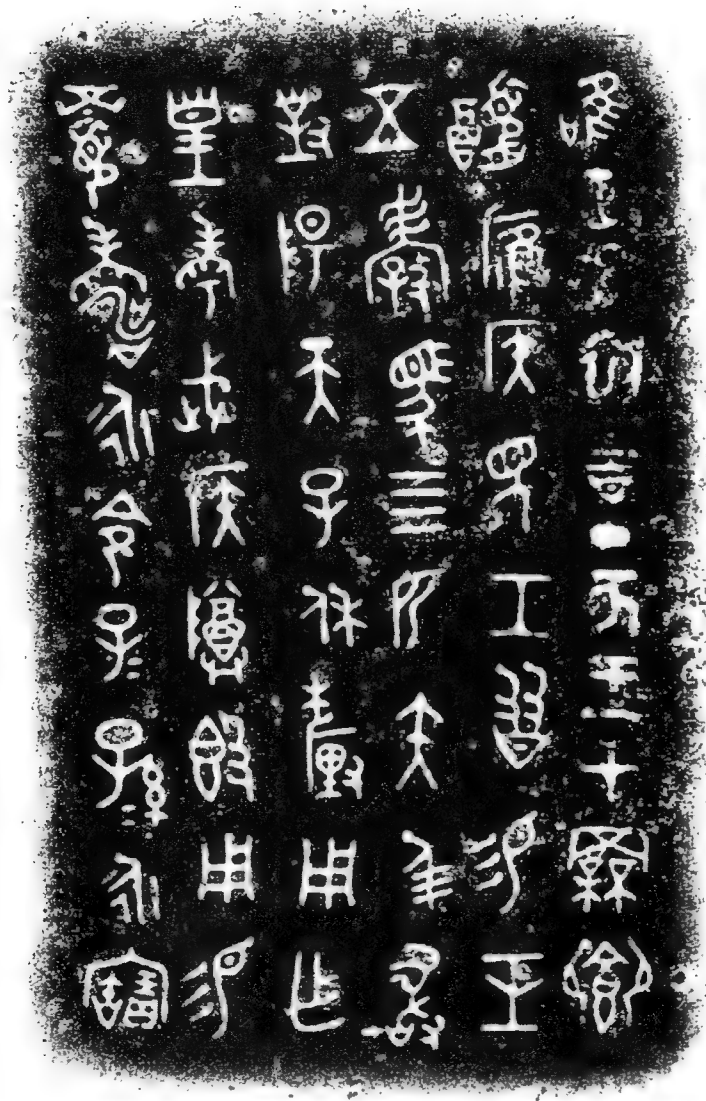 隹正月初吉丁亥王才鄉
醴𤸰侯見工友易玉
五瑴馬亖匹矢三千敢
對揚天子休釐用乍
皇考武侯𣪘用易
眉壽永令子孫永寶